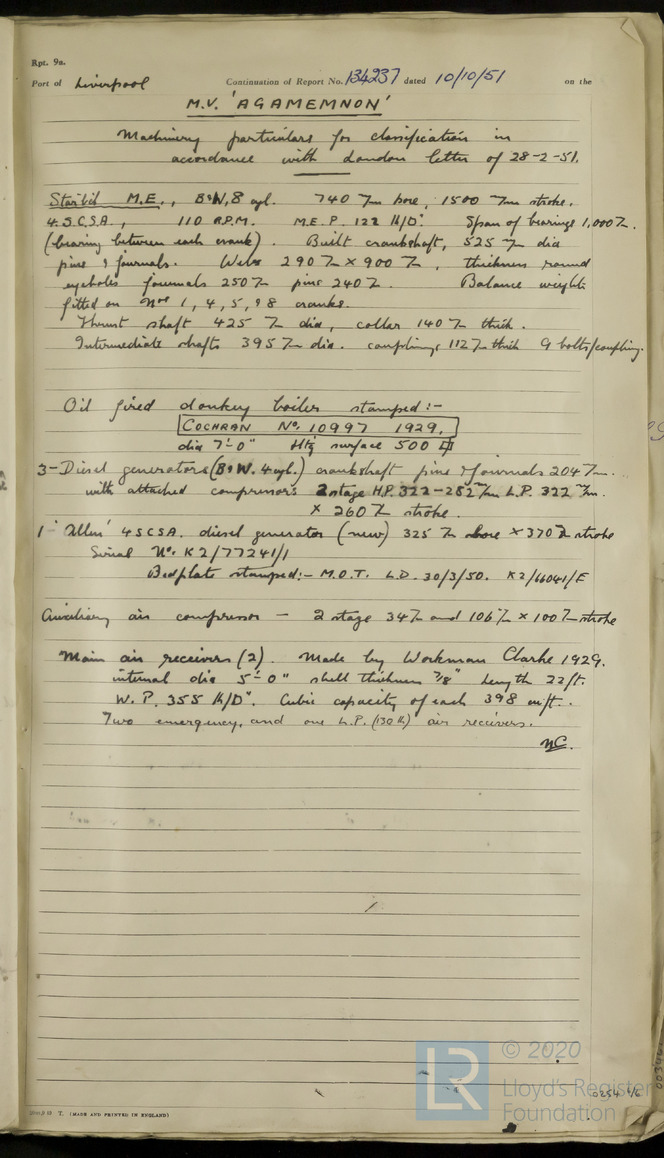 Rpt. 9a.
Port of Liverpool Continuation of Report No. 134237 dated 10/10/51 on the
M.V. 'AGAMEMNON'
Machinery particulars for classification in
accordance with London letter of 28-2-51.
Starb'd M.E., B&W, 8 cyl. 740 m/m bore, 1500 m/m stroke.
4.S.C.S.A., 110 R.P.M. M.E.P. 122 lb/□". Span of bearings 1,000 m/m.
(bearing between each crank). Built crankshaft, 525 m/m dia
pins & journals. Webs 290 m/m x 900 m/m, thickness round
eyeholes journals 250 m/m pins 240 m/m. Balance weights
fitted on Nos 1, 4, 5, & 8 cranks.
Thrust shaft 425 m/m dia, collar 140 m/m thick.
Intermediate shafts 395 m/m dia. couplings 112 m/m thick 9 bolts/coupling.
Oil fired donkey boiler stamped:-
COCHRAN No. 10997 1929.
dia 7'-0" Htg surface 500 □'
3-Diesel generators (B&W. 4 cyl.) crankshaft pins & journals 204 m/m.
with attached compressors 2 stage H.P. 322-282 m/m L.P. 322 m/m.
x 260 m/m stroke.
1 'Allen' 4SCSA. diesel generator (new) 325 m/m bore x 370 m/m stroke
Serial No. K2/77241/1
Bedplate stamped:- M.O.T. L.D. 30/3/50. K2/66041/E
Auxiliary air compressor - 2 stage 34 m/m and 106 m/m x 100 m/m stroke
Main air receivers (2). Made by Workman Clarke 1929.
internal dia 5'-0" shell thickness 7/8" length 22 ft.
W.P. 355 lb/□". Cubic capacity of each 398 cu/ft.
Two emergency, and one L.P. (130 lb) air receivers.
T. (MADE AND PRINTED IN ENGLAND)
LR
© 2020
Lloyd's Register
Foundation
0254